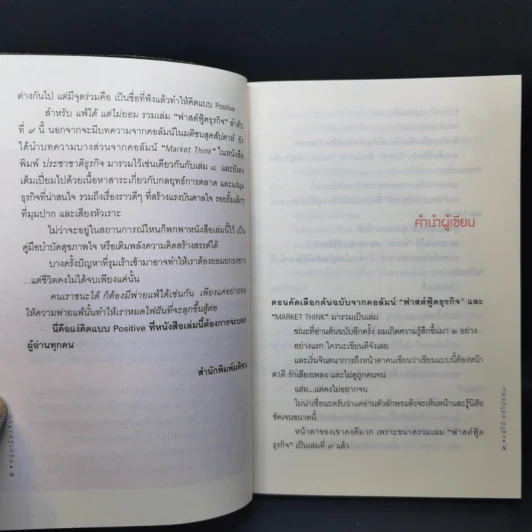 ต่างกันไป แต่มีจุดร่วมคือ เป็นชื่อที่ฟังแล้วทำให้คิดแบบ Positive
สำหรับ แพ้ได้ แต่ไม่ยอม รวมเล่ม "ฟาสต์ฟู้ดธุรกิจ" ลำดับ
ที่ ๙ นี้ นอกจากจะมีบทความจากคอลัมน์ในมติชนสุดสัปดาห์ ยัง
ได้นำบทความบางส่วนจากคอลัมน์ "Market Think" ในหนังสือ
พิมพ์ ประชาชาติธุรกิจ มารวมไว้เช่นเดียวกันกับเล่ม ๘ และยังคง
เต็มเปี่ยมไปด้วยเนื้อหาสาระเกี่ยวกับกลยุทธ์การตลาด และแง่มุม
ธุรกิจที่น่าสนใจ รวมถึงเรื่องราวดีๆ ที่สร้างแรงบันดาลใจ รอยยิ้มเล็กๆ
ที่มุมปาก และเสียงหัวเราะ
ไม่ว่าจะอยู่ในสถานการณ์ไหนก็พกพาหนังสือเล่มนี้ไว้ เป็น
คู่มือบำบัดสุขภาพใจ หรือเติมพลังความคิดสร้างสรรค์ได้
บางครั้งปัญหาที่รุมเร้าเข้ามาอาจทำให้เราต้องยอมยกธงขาว
...แต่ชีวิตคงไม่ได้จบเพียงแค่นั้น
คนเราชนะได้ ก็ต้องมีพ่ายแพ้ได้เช่นกัน เพียงแค่อย่ายอม
ให้ความพ่ายแพ้นั้นทำให้เราหมดไฟฝันที่จะลุกขึ้นสู้ต่อ
นี่คือแง่คิดแบบ Positive ที่หนังสือเล่มนี้ต้องการจะบอก
ผู้อ่านทุกคน
สำนักพิมพ์มติชน
คำนำผู้เขียน
ตอนคัดเลือกต้นฉบับจากคอลัมน์ "ฟาสต์ฟู้ดธุรกิจ" และ
"MARKET THINK" มารวมเป็นเล่ม
ขณะที่อ่านต้นฉบับอีกครั้ง ผมเกิดความรู้สึกขึ้นมา ๒ อย่าง
อย่างแรก ใครนะเขียนดีจังเลย
และเริ่มจินตนาการถึงหน้าตาคนเขียนว่าเขียนแบบนี้ต้องหน้า
ตาดี รักเสียงเพลง และไม่ดูถูกคนจน
แฮ่ม...แต่คงไม่อยากจน
ไม่น่าเชื่อนะครับว่าแค่อ่านตัวอักษรแล้วจะเห็นหน้าและรู้นิสัย
ชัดเจนขนาดนี้
หน้าตาของเขาคงดีมาก เพราะขนาดรวมเล่ม "ฟาสต์ฟู้ด
ธุรกิจ" เป็นเล่มที่ ๙ แล้ว